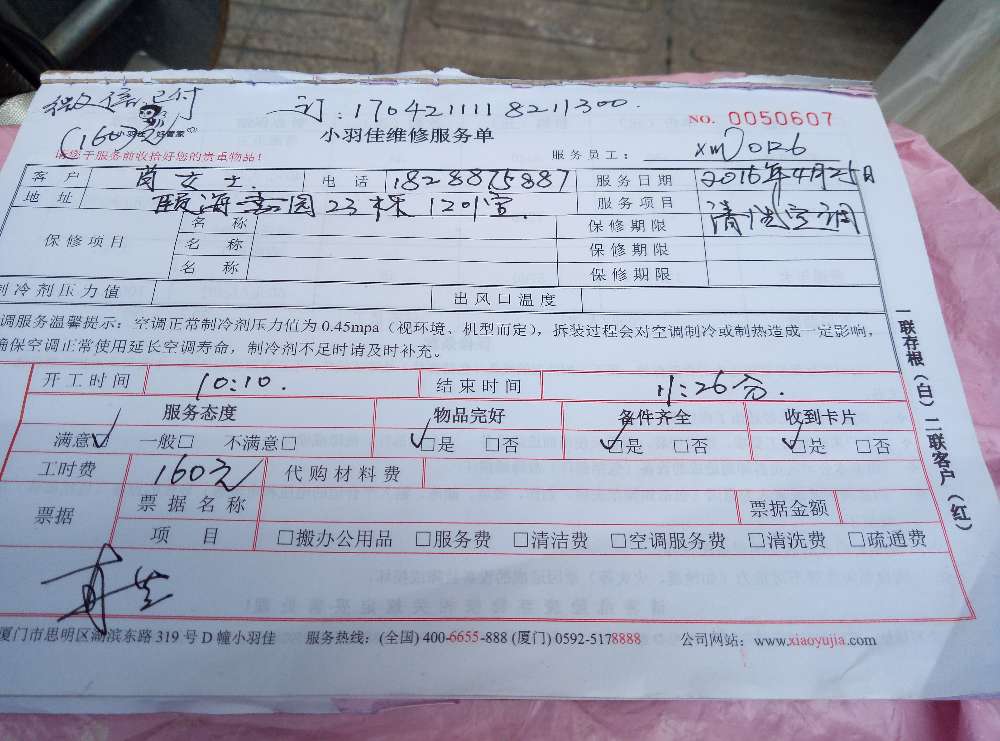 微信已付 订:1704211118211300.
(160元) 小羽佳 好管家 小羽佳维修服务单 NO. 0050607
请您于服务前收拾好您的贵重物品! 服务员工: xm0126
客户 女士. 电话 1828875887 服务日期 2016年4月25日
地址 颐海嘉园23栋1201室. 服务项目 清洗空调
保修项目 名称 保修期限
名称 保修期限
名称 保修期限
制冷剂压力值 出风口温度
调服务温馨提示:空调正常制冷剂压力值为0.45mpa(视环境、机型而定),拆装过程会对空调制冷或制热造成一定影响,
确保空调正常使用延长空调寿命,制冷剂不足时请及时补充。
开工时间 10:10. 结束时间 11:26分
服务态度 物品完好 备件齐全 收到卡片
满意□✓ 一般□ 不满意□ ✓□是 □否 ✓□是 □否 ✓□是 □否
工时费 160元 代购材料费
票据 票据名称 票据金额
项目 □搬办公用品 □服务费 □清洁费 □空调服务费 □清洗费 □疏通费
厦门市思明区湖滨东路 319 号 D 幢小羽佳 服务热线:(全国) 400-6655-888 (厦门) 0592-5178888 公司网站:www.xiaoyujia.com
一联存根(白)二联客户(红)